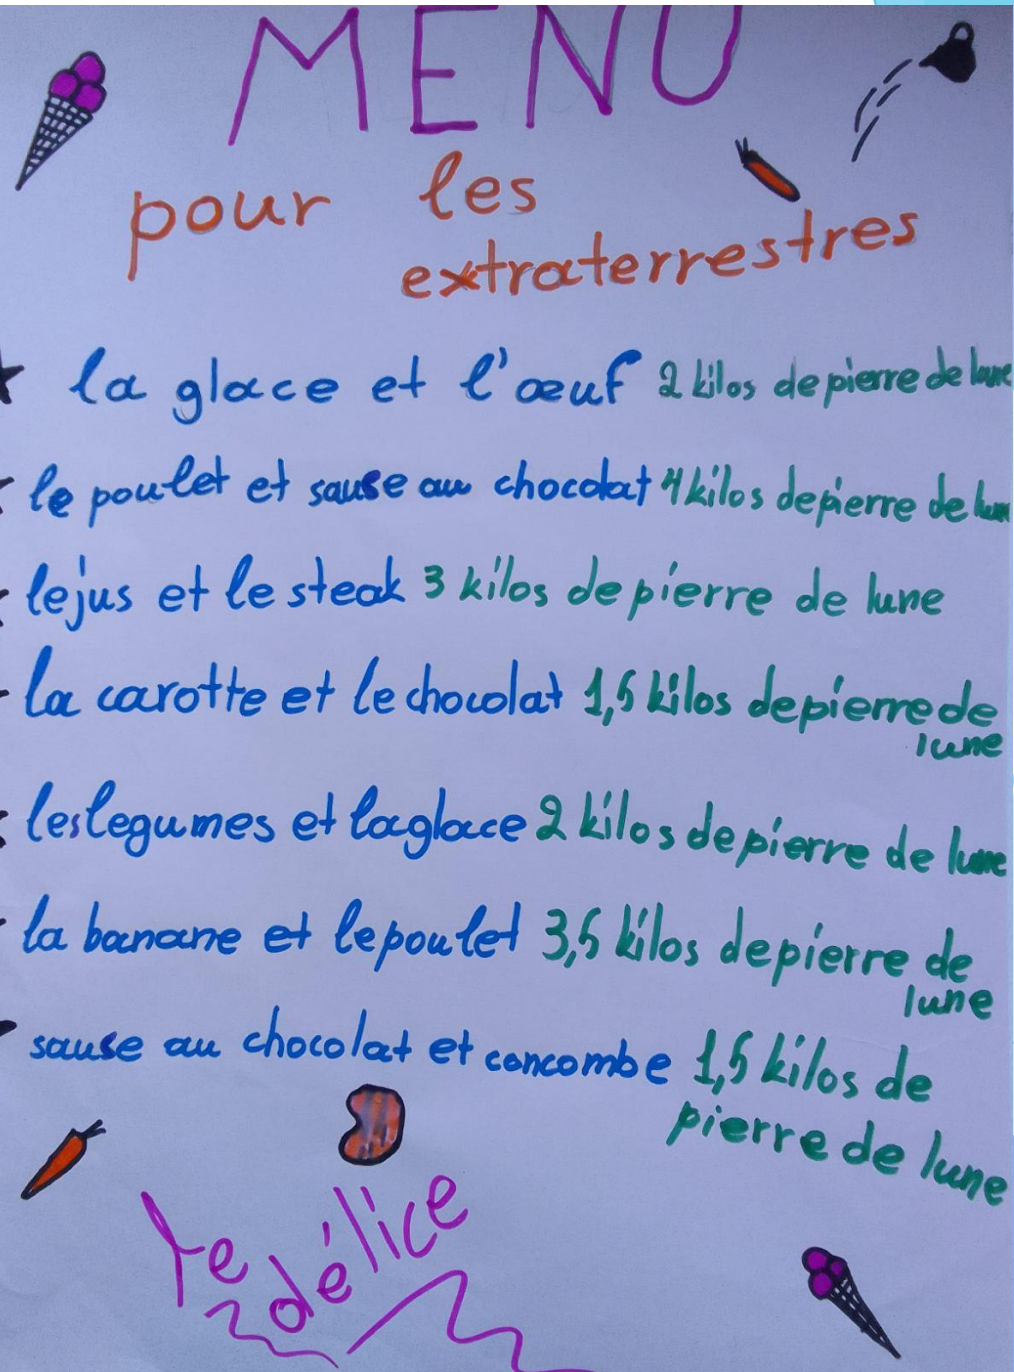 MENU
pour les
extraterrestres
la glace et l'œuf 2 kilos de pierre de lune
le poulet et sause au chocolat 4 kilos de pierre de lune
le jus et le steak 3 kilos de pierre de lune
la carotte et le chocolat 1,5 kilos de pierre de
lune
les legumes et la glace 2 kilos de pierre de lune
la banane et le poulet 3,5 kilos de pierre de
lune
sause au chocolat et concombe 1,5 kilos de
pierre de lune
Le
délice